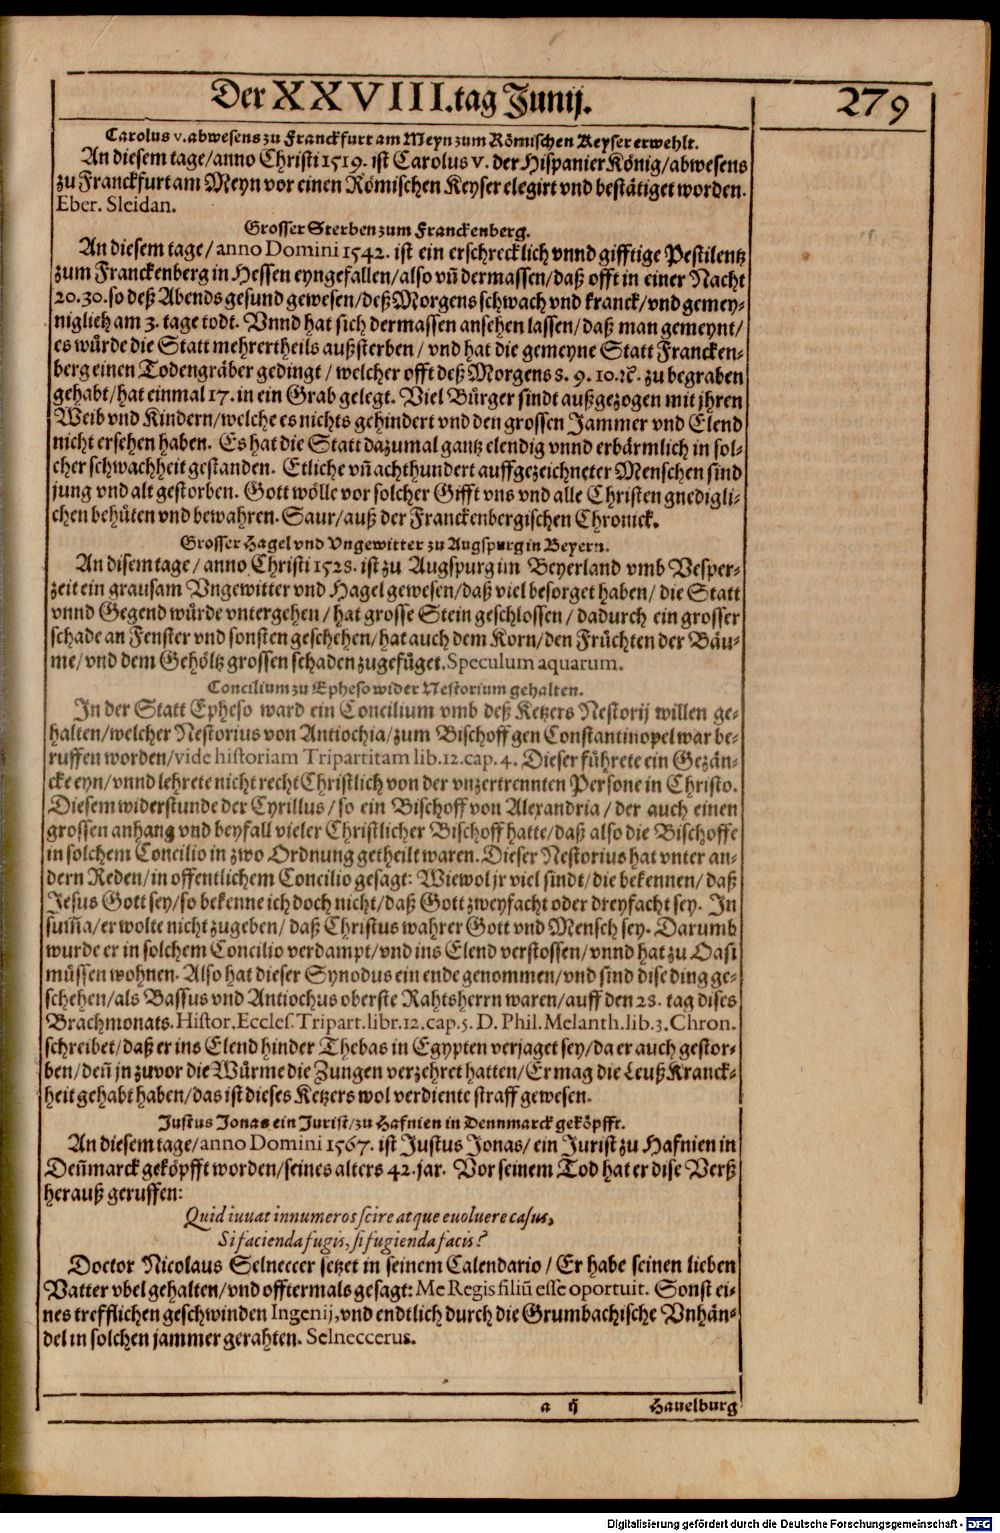 Der XXVIII. tag Junij. 279
Carolus v. abwesens zu Franckfurt am Meyn zum Römischen Keyser erwehlt.
An diesem tage/anno Christi 1519. ist Carolus V. der Hispanier König/abwesens
zu Franckfurt am Meyn vor einen Römischen Keyser elegirt vnd bestätiget worden.
Eber. Sleidan.
Grosser Sterben zum Franckenberg.
An diesem tage/ anno Domini 1542. ist ein erschrecklich vnnd gifftige Pestilentz
zum Franckenberg in Hessen eyngefallen/also vñ dermassen/daß offt in einer Nacht
20.30. so deß Abends gesund gewesen/deß Morgens schwach vnd kranck/vnd gemey-
niglich am 3. tage todt. Vnnd hat sich dermassen ansehen lassen/daß man gemeynt/
es würde die Statt mehrertheils außsterben/ vnd hat die gemeyne Statt Francken-
berg einen Todengräber gedingt/ welcher offt deß Morgens 8. 9. 10. ꝛc. zu begraben
gehabt/hat einmal 17. in ein Grab gelegt. Viel Bürger sindt außgezogen mit jhren
Weib vnd Kindern/welche es nichts gehindert vnd den grossen Jammer vnd Elend
nicht ersehen haben. Es hat die Statt dazumal gantz elendig vnnd erbärmlich in sol-
cher schwachheit gestanden. Etliche vñ achthundert auffgezeichneter Menschen sind
jung vnd alt gestorben. Gott wölle vor solcher Gifft vns vnd alle Christen gnedigli-
chen behüten vnd bewahren. Saur/auß der Franckenbergischen Chronick.
Grosser Hagel vnd Vngewitter zu Augspurg in Beyern.
An disem tage/ anno Christi 1528. ist zu Augspurg im Beyerland vmb Vesper-
zeit ein grausam Vngewitter vnd Hagel gewesen/daß viel besorget haben/ die Statt
vnnd Gegend würde vntergehen/ hat grosse Stein geschlossen/ dadurch ein grosser
schade an Fenster vnd sonsten geschehen/hat auch dem Korn/den Früchten der Bäu-
me/vnd dem Gehöltz grossen schaden zugefüget. Speculum aquarum.
Concilium zu Epheso wider Nestorium gehalten.
In der Statt Epheso ward ein Concilium vmb deß Ketzers Nestorij willen ge-
halten/welcher Nestorius von Antiochia/zum Bischoff gen Constantinopel war be-
ruffen worden/vide historiam Tripartitam lib.12.cap. 4. Dieser führete ein Gezän-
cke eyn/vnnd lehrete nicht recht Christlich von der vnzertrennten Persone in Christo.
Diesem widerstunde der Cyrillus/ so ein Bischoff von Alexandria/ der auch einen
grossen anhang vnd beyfall vieler Christlicher Bischoff hatte/daß also die Bischoffe
in solchem Concilio in zwo Ordnung getheilt waren. Dieser Nestorius hat vnter an-
dern Reden/in offentlichem Concilio gesagt: Wiewol jr viel sindt/die bekennen/ daß
Jesus Gott sey/so bekenne ich doch nicht/daß Gott zweyfacht oder dreyfacht sey. In
sum̃a/er wolte nicht zugeben/ daß Christus wahrer Gott vnd Mensch sey. Darumb
wurde er in solchem Concilio verdampt/vnd ins Elend verstossen/vnnd hat zu Oasi
müssen wohnen. Also hat dieser Synodus ein ende genommen/vnd sind dise ding ge-
schehen/als Bassus vnd Antiochus oberste Rahtsherrn waren/auff den 28. tag dises
Brachmonats. Histor. Eccles. Tripart. libr.12. cap. 5. D. Phil. Melanth. lib. 3. Chron.
schreibet/daß er ins Elend hinder Thebas in Egypten verjaget sey/da er auch gestor-
ben/deñ jn zuvor die Würme die Zungen verzehret hatten/Er mag die Leuß Kranck-
heit gehabt haben/das ist dieses Ketzers wol verdiente straff gewesen.
Justus Jonas ein Jurist/zu Hafnien in Dennmarck geköpfft.
An diesem tage/anno Domini 1567. ist Justus Jonas/ ein Jurist zu Hafnien in
Deñmarck geköpfft worden/seines alters 42. jar. Vor seinem Tod hat er dise Verß
herauß geruffen:
Quid iuuat innumeros scire atque euoluere casus,
Si facienda fugis, si fugienda facis?
Doctor Nicolaus Selneccer setzet in seinem Calendario/ Er habe seinen lieben
Vatter vbel gehalten/vnd offtermals gesagt: Me Regis filiũ esse oportuit. Sonst ei-
nes trefflichen geschwinden Ingenij, vnd endtlich durch die Grumbachische Vnhän-
del in solchen jammer gerahten. Selneccerus.
a ij Hauelburg
Digitalisierung gefördert durch die Deutsche Forschungsgemeinschaft - DFG